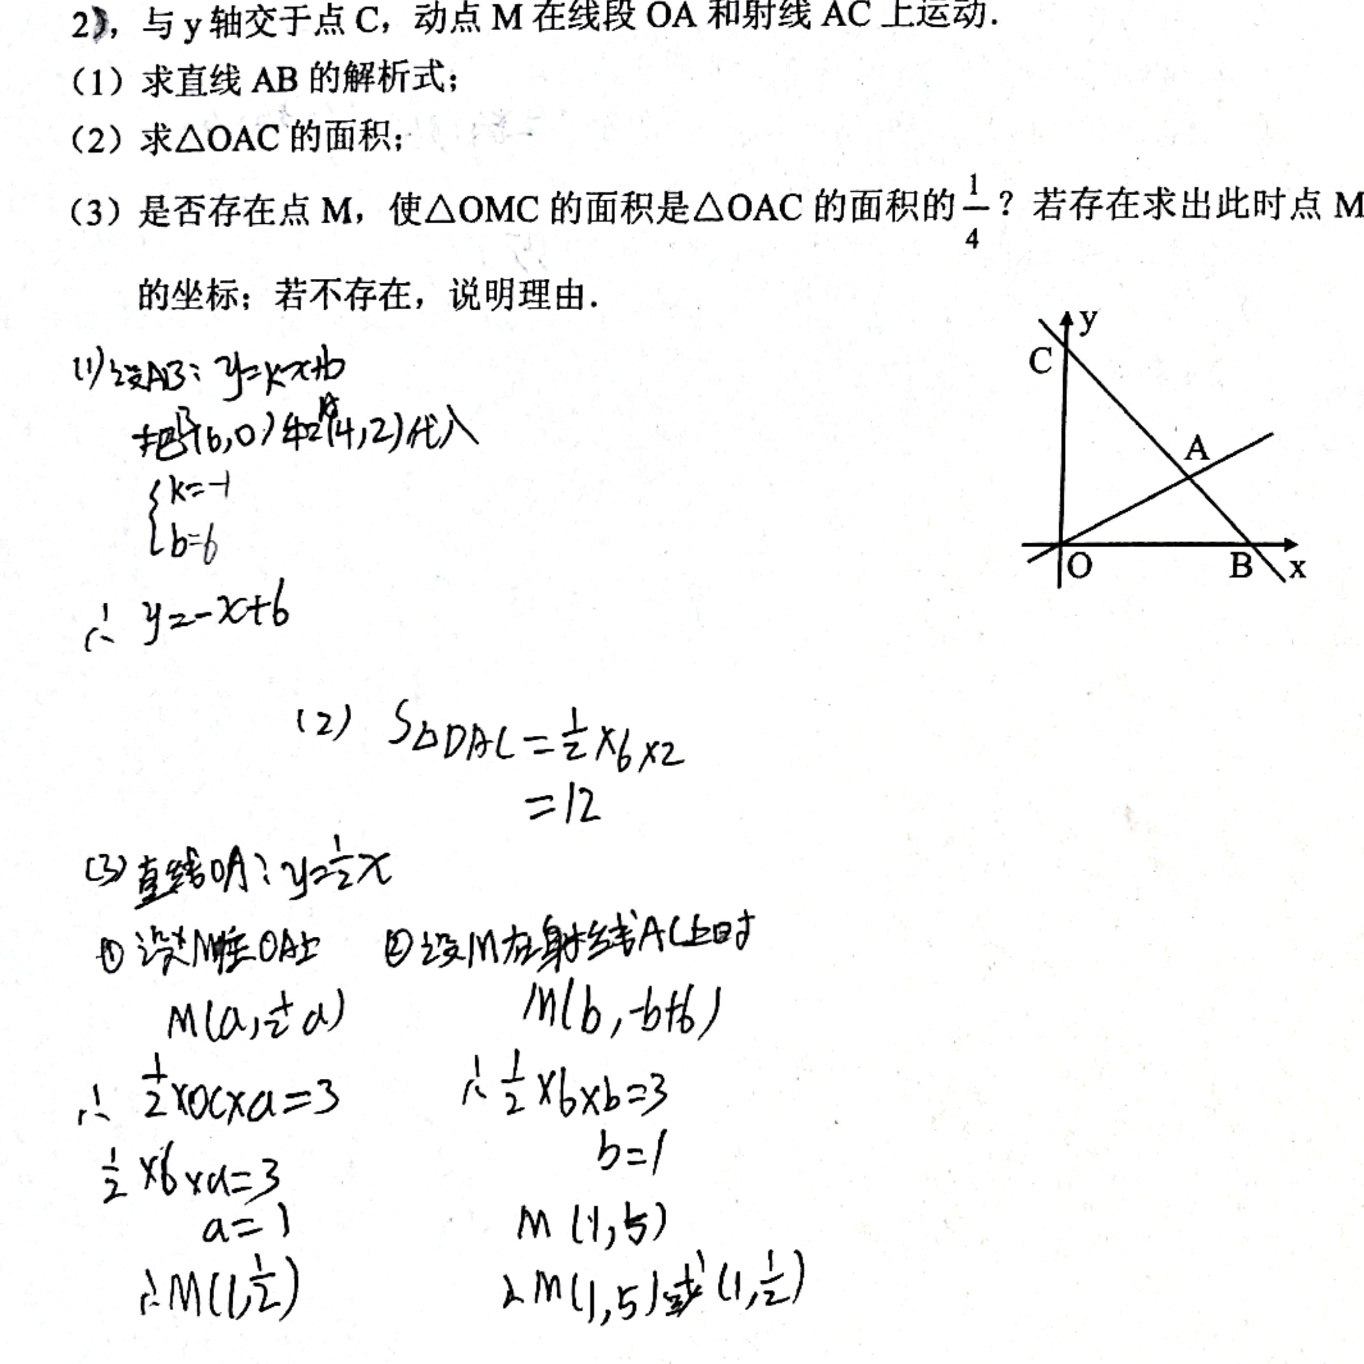 2），与 y 轴交于点 C，动点 M 在线段 OA 和射线 AC 上运动．
（1）求直线 AB 的解析式；
（2）求△OAC 的面积；
（3）是否存在点 M，使△OMC 的面积是△OAC 的面积的 1/4？若存在求出此时点 M
的坐标；若不存在，说明理由．
y
C
A
O
B
x
(1)设AB：y=kx+b
把B(6,0)和A(4,2)代入
{k=-1
b=6
∴ y=-x+6
(2) S△OAC=1/2×6×2
=12
(3)直线OA：y=1/2x
①设M在OA上
M(a,1/2a)
∴ 1/2×OC×a=3
1/2×6×a=3
a=1
∴M(1,1/2)
②设M在射线AC上时
M(b,-b+6)
∴ 1/2×6×b=3
b=1
M(1,5)
∴M(1,5)或(1,1/2)